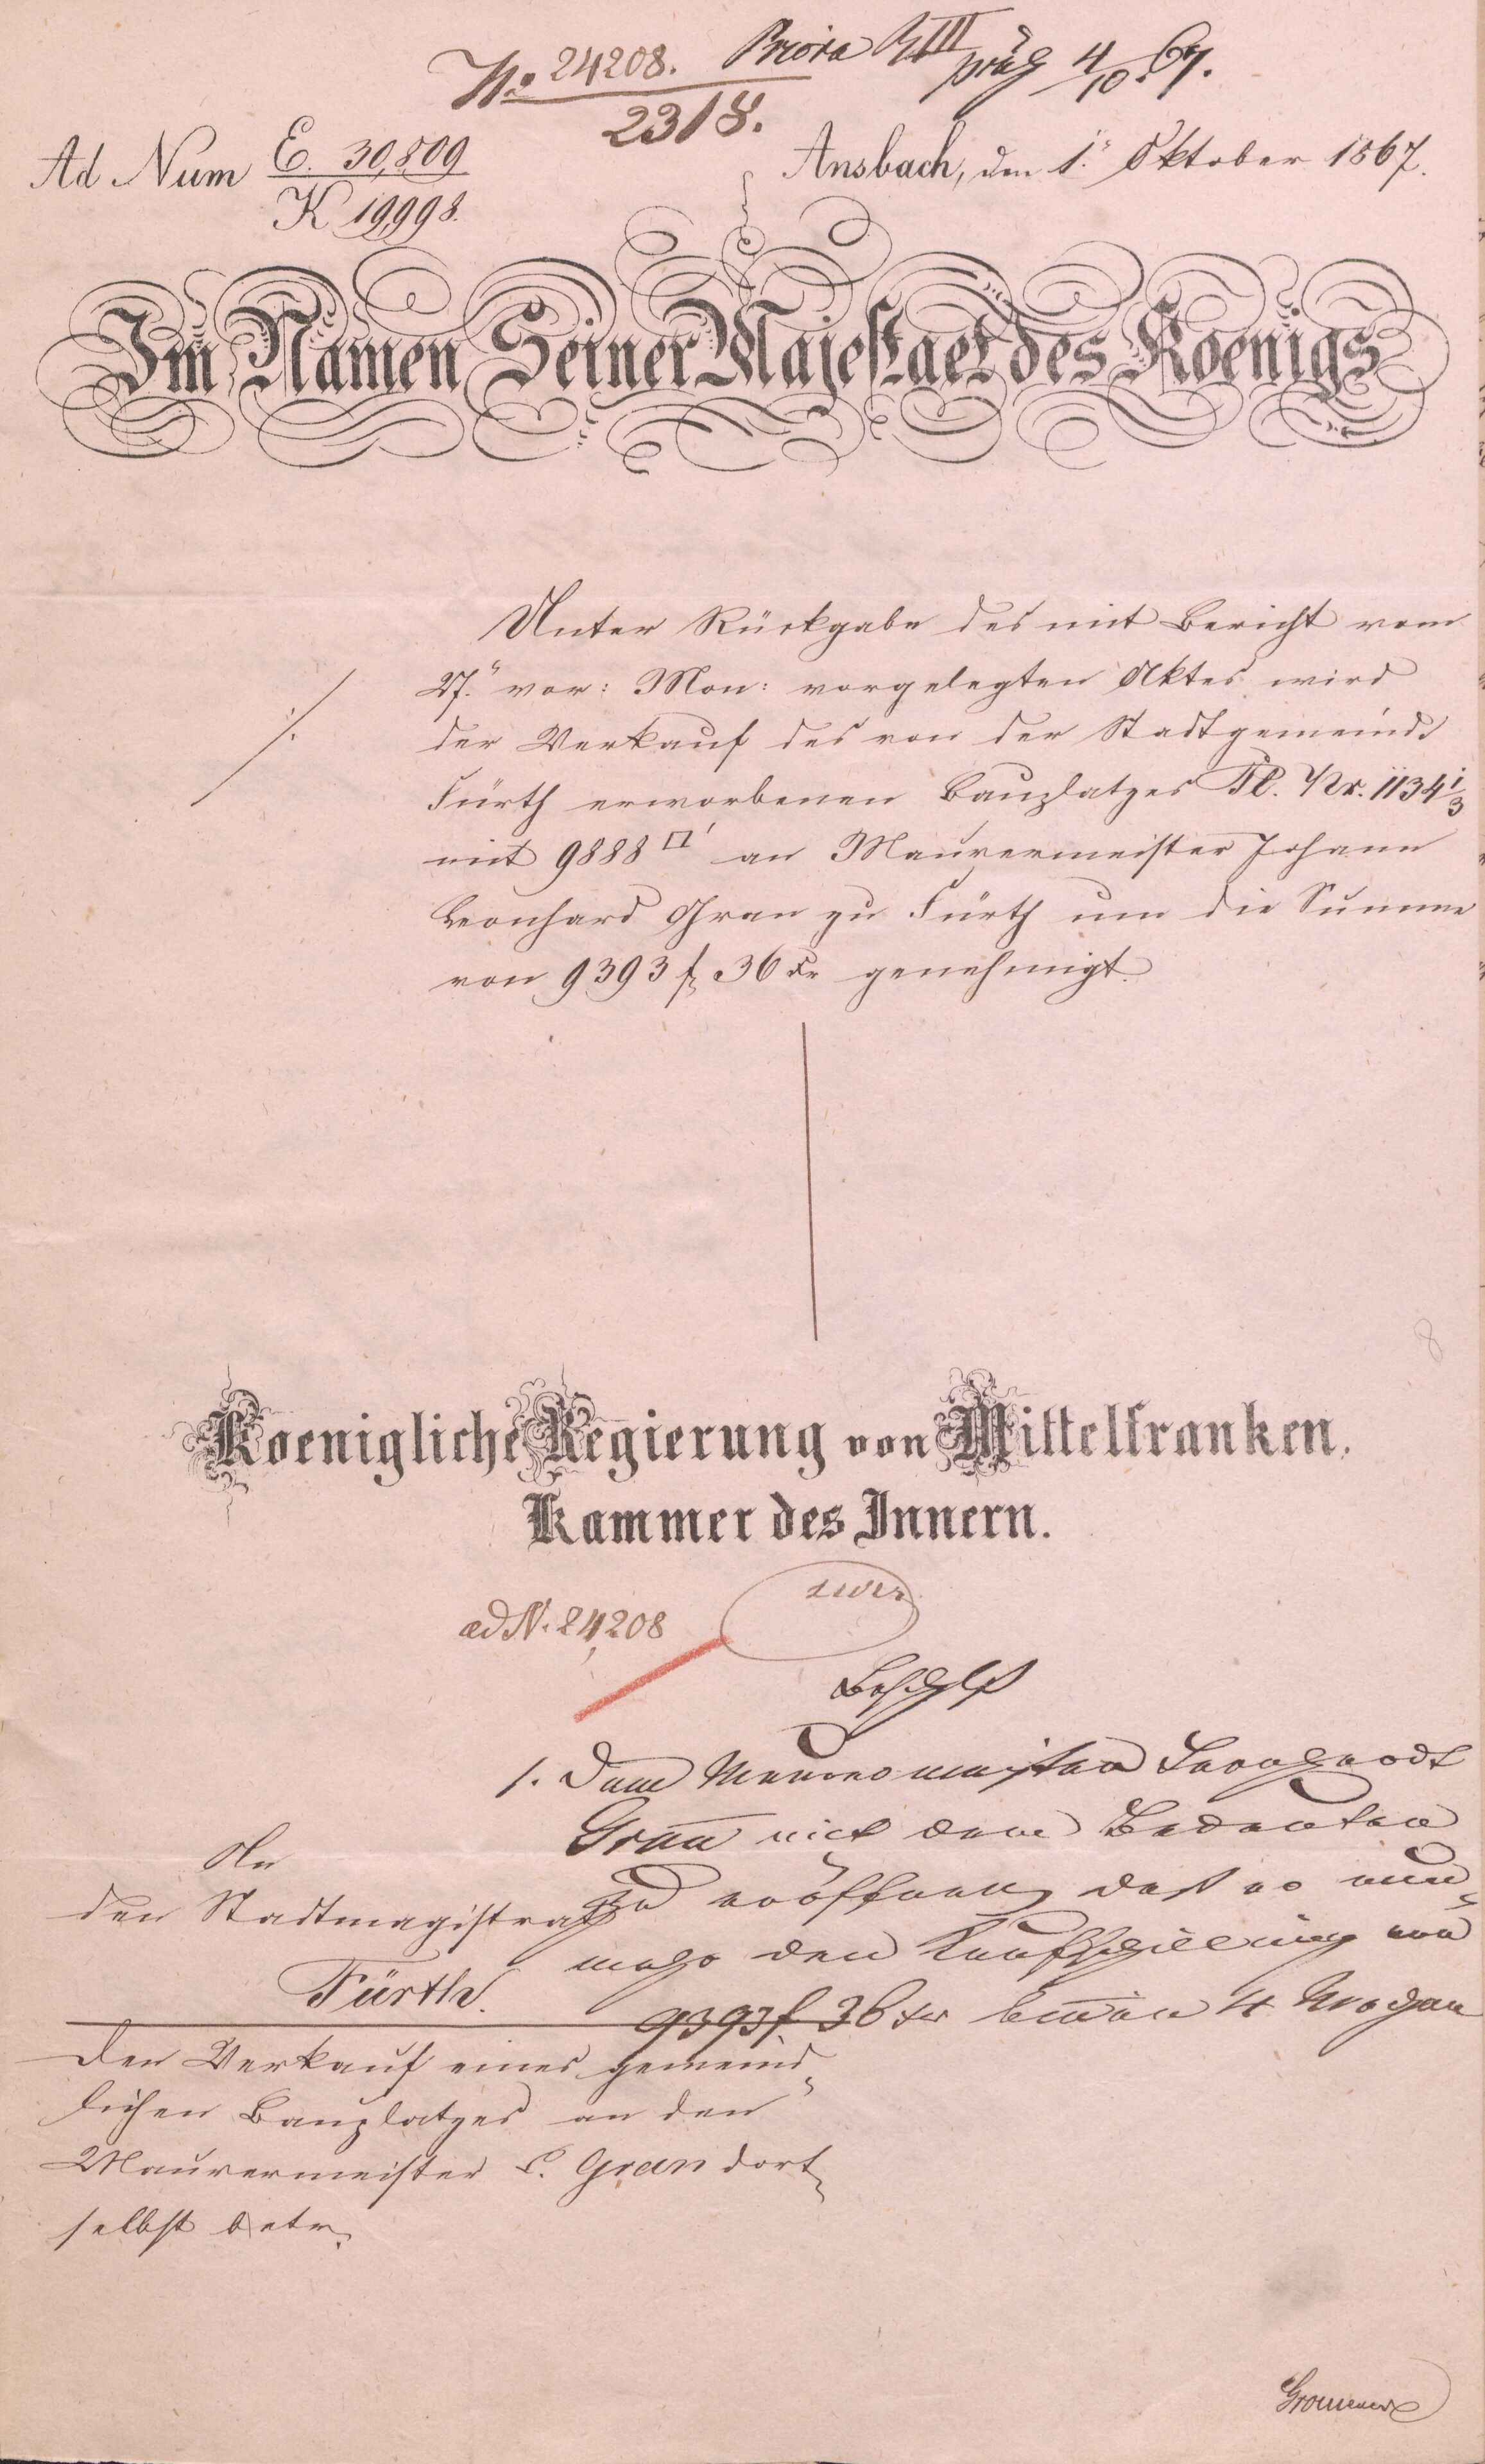 No 24208. Priora R III präs 4/10. 67.
2318.
Ad Num E. 30,809
K 19998.
Ansbach, den 1. Oktober 1867.
Im Namen Seiner Majestaet des Koenigs
Unter Rückgabe des mit Bericht vom
27. vor: Mon: vorgelegten Aktes wird
der Verkauf des von der Stadtgemeinde
Fürth erworbenen Bauplatzes Pl. Nr. 1134 1/3
mit 9888 □' an Maurermeister Johann
Leonhard Gran zu Fürth um die Summe
von 9393 f 36 Xr genehmigt.
8
Koenigliche Regierung von Mittelfranken,
Kammer des Innern.
ad N. 24,208
Beschluß
1. Dem Maurermeister Leonhardt
Grau mit dem Bedeuten
zu eröffnen daß er nun-
mehr den Kaufschilling von
9393 f. 36 xr binnen 4 Wochen
An
den Stadtmagistrat
Fürth.
Den Verkauf eines gemeind-
lichen Bauplatzes an den
Maurermeister L. Gran dort-
selbst betr.